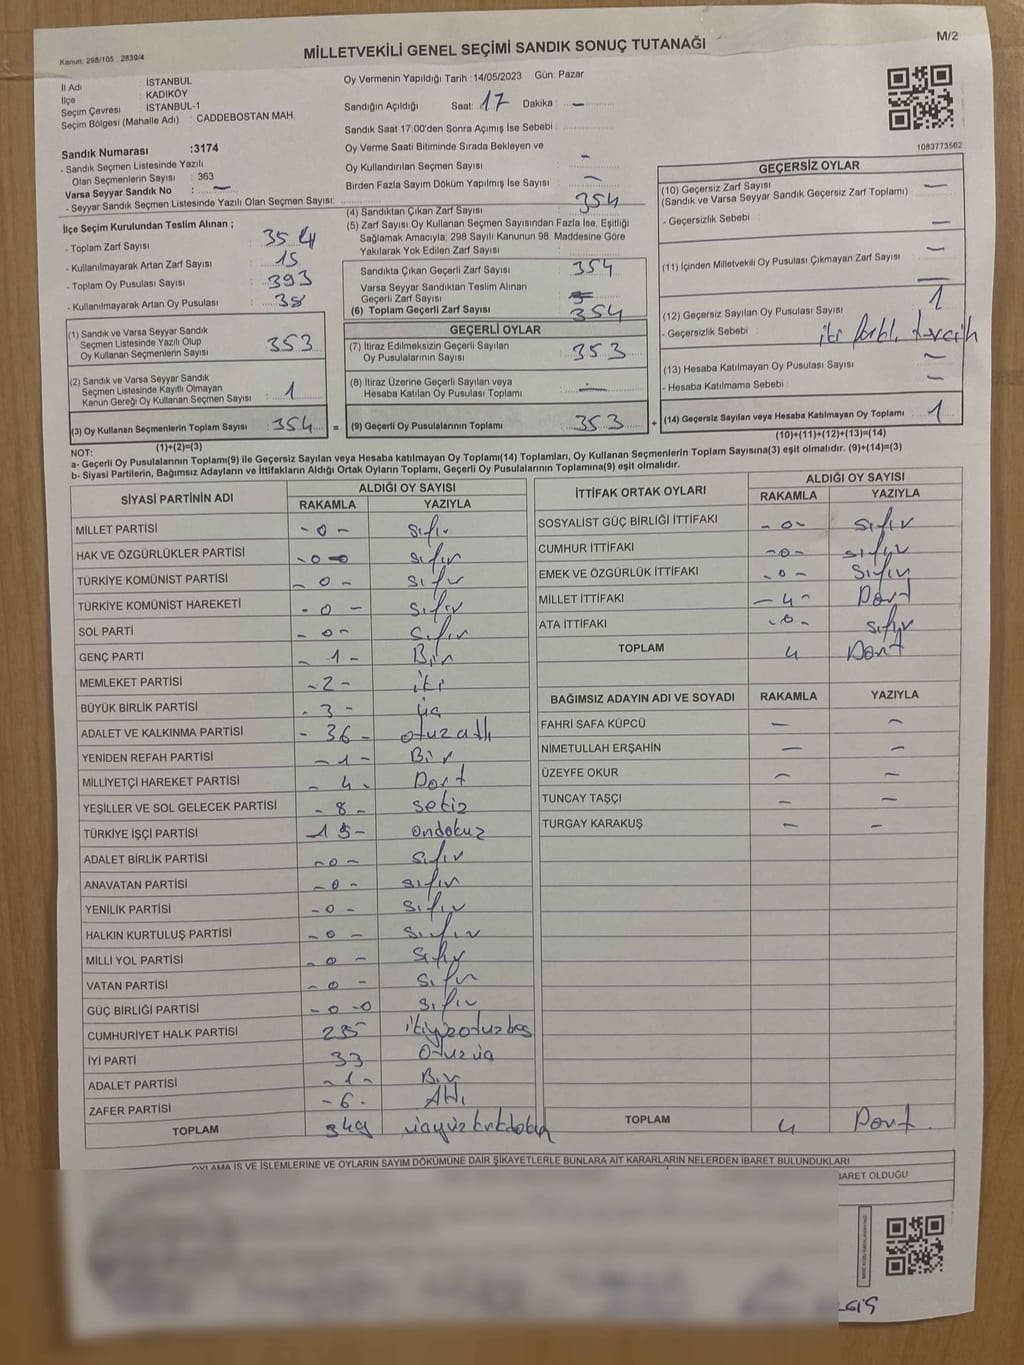 Kanun: 298/105 , 2839/4
MİLLETVEKİLİ GENEL SEÇİMİ SANDIK SONUÇ TUTANAĞI
M/2
İl Adı : İSTANBUL
İlçe : KADIKÖY
Seçim Çevresi : İSTANBUL-1
Seçim Bölgesi (Mahalle Adı) : CADDEBOSTAN MAH.
Sandık Numarası :3174
- Sandık Seçmen Listesinde Yazılı
Olan Seçmenlerin Sayısı : 363
Varsa Seyyar Sandık No : —
- Seyyar Sandık Seçmen Listesinde Yazılı Olan Seçmen Sayısı:
Oy Vermenin Yapıldığı Tarih :14/05/2023 Gün: Pazar
Sandığın Açıldığı Saat: 17 Dakika : —
Sandık Saat 17:00'den Sonra Açımış İse Sebebi :
Oy Verme Saati Bitiminde Sırada Bekleyen ve
Oy Kullandırılan Seçmen Sayısı : —
Birden Fazla Sayım Döküm Yapılmış İse Sayısı : —
1083773562
İlçe Seçim Kurulundan Teslim Alınan ;
- Toplam Zarf Sayısı : 354
- Kullanılmayarak Artan Zarf Sayısı : 15
- Toplam Oy Pusulası Sayısı : 393
- Kullanılmayarak Artan Oy Pusulası : 38
(1) Sandık ve Varsa Seyyar Sandık
Seçmen Listesinde Yazılı Olup
Oy Kullanan Seçmenlerin Sayısı : 353
(2) Sandık ve Varsa Seyyar Sandık
Seçmen Listesinde Kayıtlı Olmayan
Kanun Gereği Oy Kullanan Seçmen Sayısı : 1
(3) Oy Kullanan Seçmenlerin Toplam Sayısı : 354 =
(1)+(2)=(3)
(4) Sandıktan Çıkan Zarf Sayısı : 354
(5) Zarf Sayısı Oy Kullanan Seçmen Sayısından Fazla İse, Eşitliği
Sağlamak Amacıyla; 298 Sayılı Kanunun 98. Maddesine Göre
Yakılarak Yok Edilen Zarf Sayısı :
Sandıkta Çıkan Geçerli Zarf Sayısı : 354
Varsa Seyyar Sandıktan Teslim Alınan
Geçerli Zarf Sayısı :
(6) Toplam Geçerli Zarf Sayısı : 354
GEÇERLİ OYLAR
(7) İtiraz Edilmeksizin Geçerli Sayılan
Oy Pusulalarının Sayısı : 353
(8) İtiraz Üzerine Geçerli Sayılan veya
Hesaba Katılan Oy Pusulası Toplamı : —
(9) Geçerli Oy Pusulalarının Toplamı : 353 +
GEÇERSİZ OYLAR
(10) Geçersiz Zarf Sayısı : —
(Sandık ve Varsa Seyyar Sandık Geçersiz Zarf Toplamı)
- Geçersizlik Sebebi : —
(11) İçinden Milletvekili Oy Pusulası Çıkmayan Zarf Sayısı : —
(12) Geçersiz Sayılan Oy Pusulası Sayısı : 1
- Geçersizlik Sebebi : iki farklı tercih
(13) Hesaba Katılmayan Oy Pusulası Sayısı : —
- Hesaba Katılmama Sebebi : —
(14) Geçersiz Sayılan veya Hesaba Katılmayan Oy Toplamı : 1
(10)+(11)+(12)+(13)=(14)
NOT:
a- Geçerli Oy Pusulalarının Toplamı(9) ile Geçersiz Sayılan veya Hesaba katılmayan Oy Toplamı(14) Toplamları, Oy Kullanan Seçmenlerin Toplam Sayısına(3) eşit olmalıdır. (9)+(14)=(3)
b- Siyasi Partilerin, Bağımsız Adayların ve İttifakların Aldığı Ortak Oyların Toplamı, Geçerli Oy Pusulalarının Toplamına(9) eşit olmalıdır.
SİYASİ PARTİNİN ADI ALDIĞI OY SAYISI
RAKAMLA YAZIYLA
MİLLET PARTİSİ - 0 - sıfır
HAK VE ÖZGÜRLÜKLER PARTİSİ - 0 - sıfır
TÜRKİYE KOMÜNİST PARTİSİ - 0 - sıfır
TÜRKİYE KOMÜNİST HAREKETİ - 0 - sıfır
SOL PARTİ - 0 - sıfır
GENÇ PARTİ - 1 - Bir
MEMLEKET PARTİSİ - 2 - iki
BÜYÜK BİRLİK PARTİSİ - 3 - üç
ADALET VE KALKINMA PARTİSİ - 36 - otuzaltı
YENİDEN REFAH PARTİSİ - 1 - Bir
MİLLİYETÇİ HAREKET PARTİSİ - 4 - Dört
YEŞİLLER VE SOL GELECEK PARTİSİ - 8 - sekiz
TÜRKİYE İŞÇİ PARTİSİ - 19 - ondokuz
ADALET BİRLİK PARTİSİ - 0 - sıfır
ANAVATAN PARTİSİ - 0 - sıfır
YENİLİK PARTİSİ - 0 - sıfır
HALKIN KURTULUŞ PARTİSİ - 0 - sıfır
MİLLİ YOL PARTİSİ - 0 - sıfır
VATAN PARTİSİ - 0 - sıfır
GÜÇ BİRLİĞİ PARTİSİ - 0 - 0 sıfır
CUMHURİYET HALK PARTİSİ 235 ikiyüzotuzbeş
İYİ PARTİ 33 Otuzüç
ADALET PARTİSİ - 1 - Bir
ZAFER PARTİSİ - 6 - Altı
TOPLAM 349 üçyüzkırkdokuz
İTTİFAK ORTAK OYLARI ALDIĞI OY SAYISI
RAKAMLA YAZIYLA
SOSYALİST GÜÇ BİRLİĞİ İTTİFAKI - 0 - sıfır
CUMHUR İTTİFAKI - 0 - sıfır
EMEK VE ÖZGÜRLÜK İTTİFAKI - 0 - sıfır
MİLLET İTTİFAKI - 4 - Dört
ATA İTTİFAKI - 0 - sıfır
TOPLAM 4 Dört
BAĞIMSIZ ADAYIN ADI VE SOYADI RAKAMLA YAZIYLA
FAHRİ SAFA KÜPCÜ — —
NİMETULLAH ERŞAHİN — —
ÜZEYFE OKUR — —
TUNCAY TAŞÇI — —
TURGAY KARAKUŞ — —
TOPLAM 4 Dört
OYLAMA İŞ VE İŞLEMLERİNE VE OYLARIN SAYIM DÖKÜMÜNE DAİR ŞİKAYETLERLE BUNLARA AİT KARARLARIN NELERDEN İBARET BULUNDUKLARI
BARET OLDUĞU